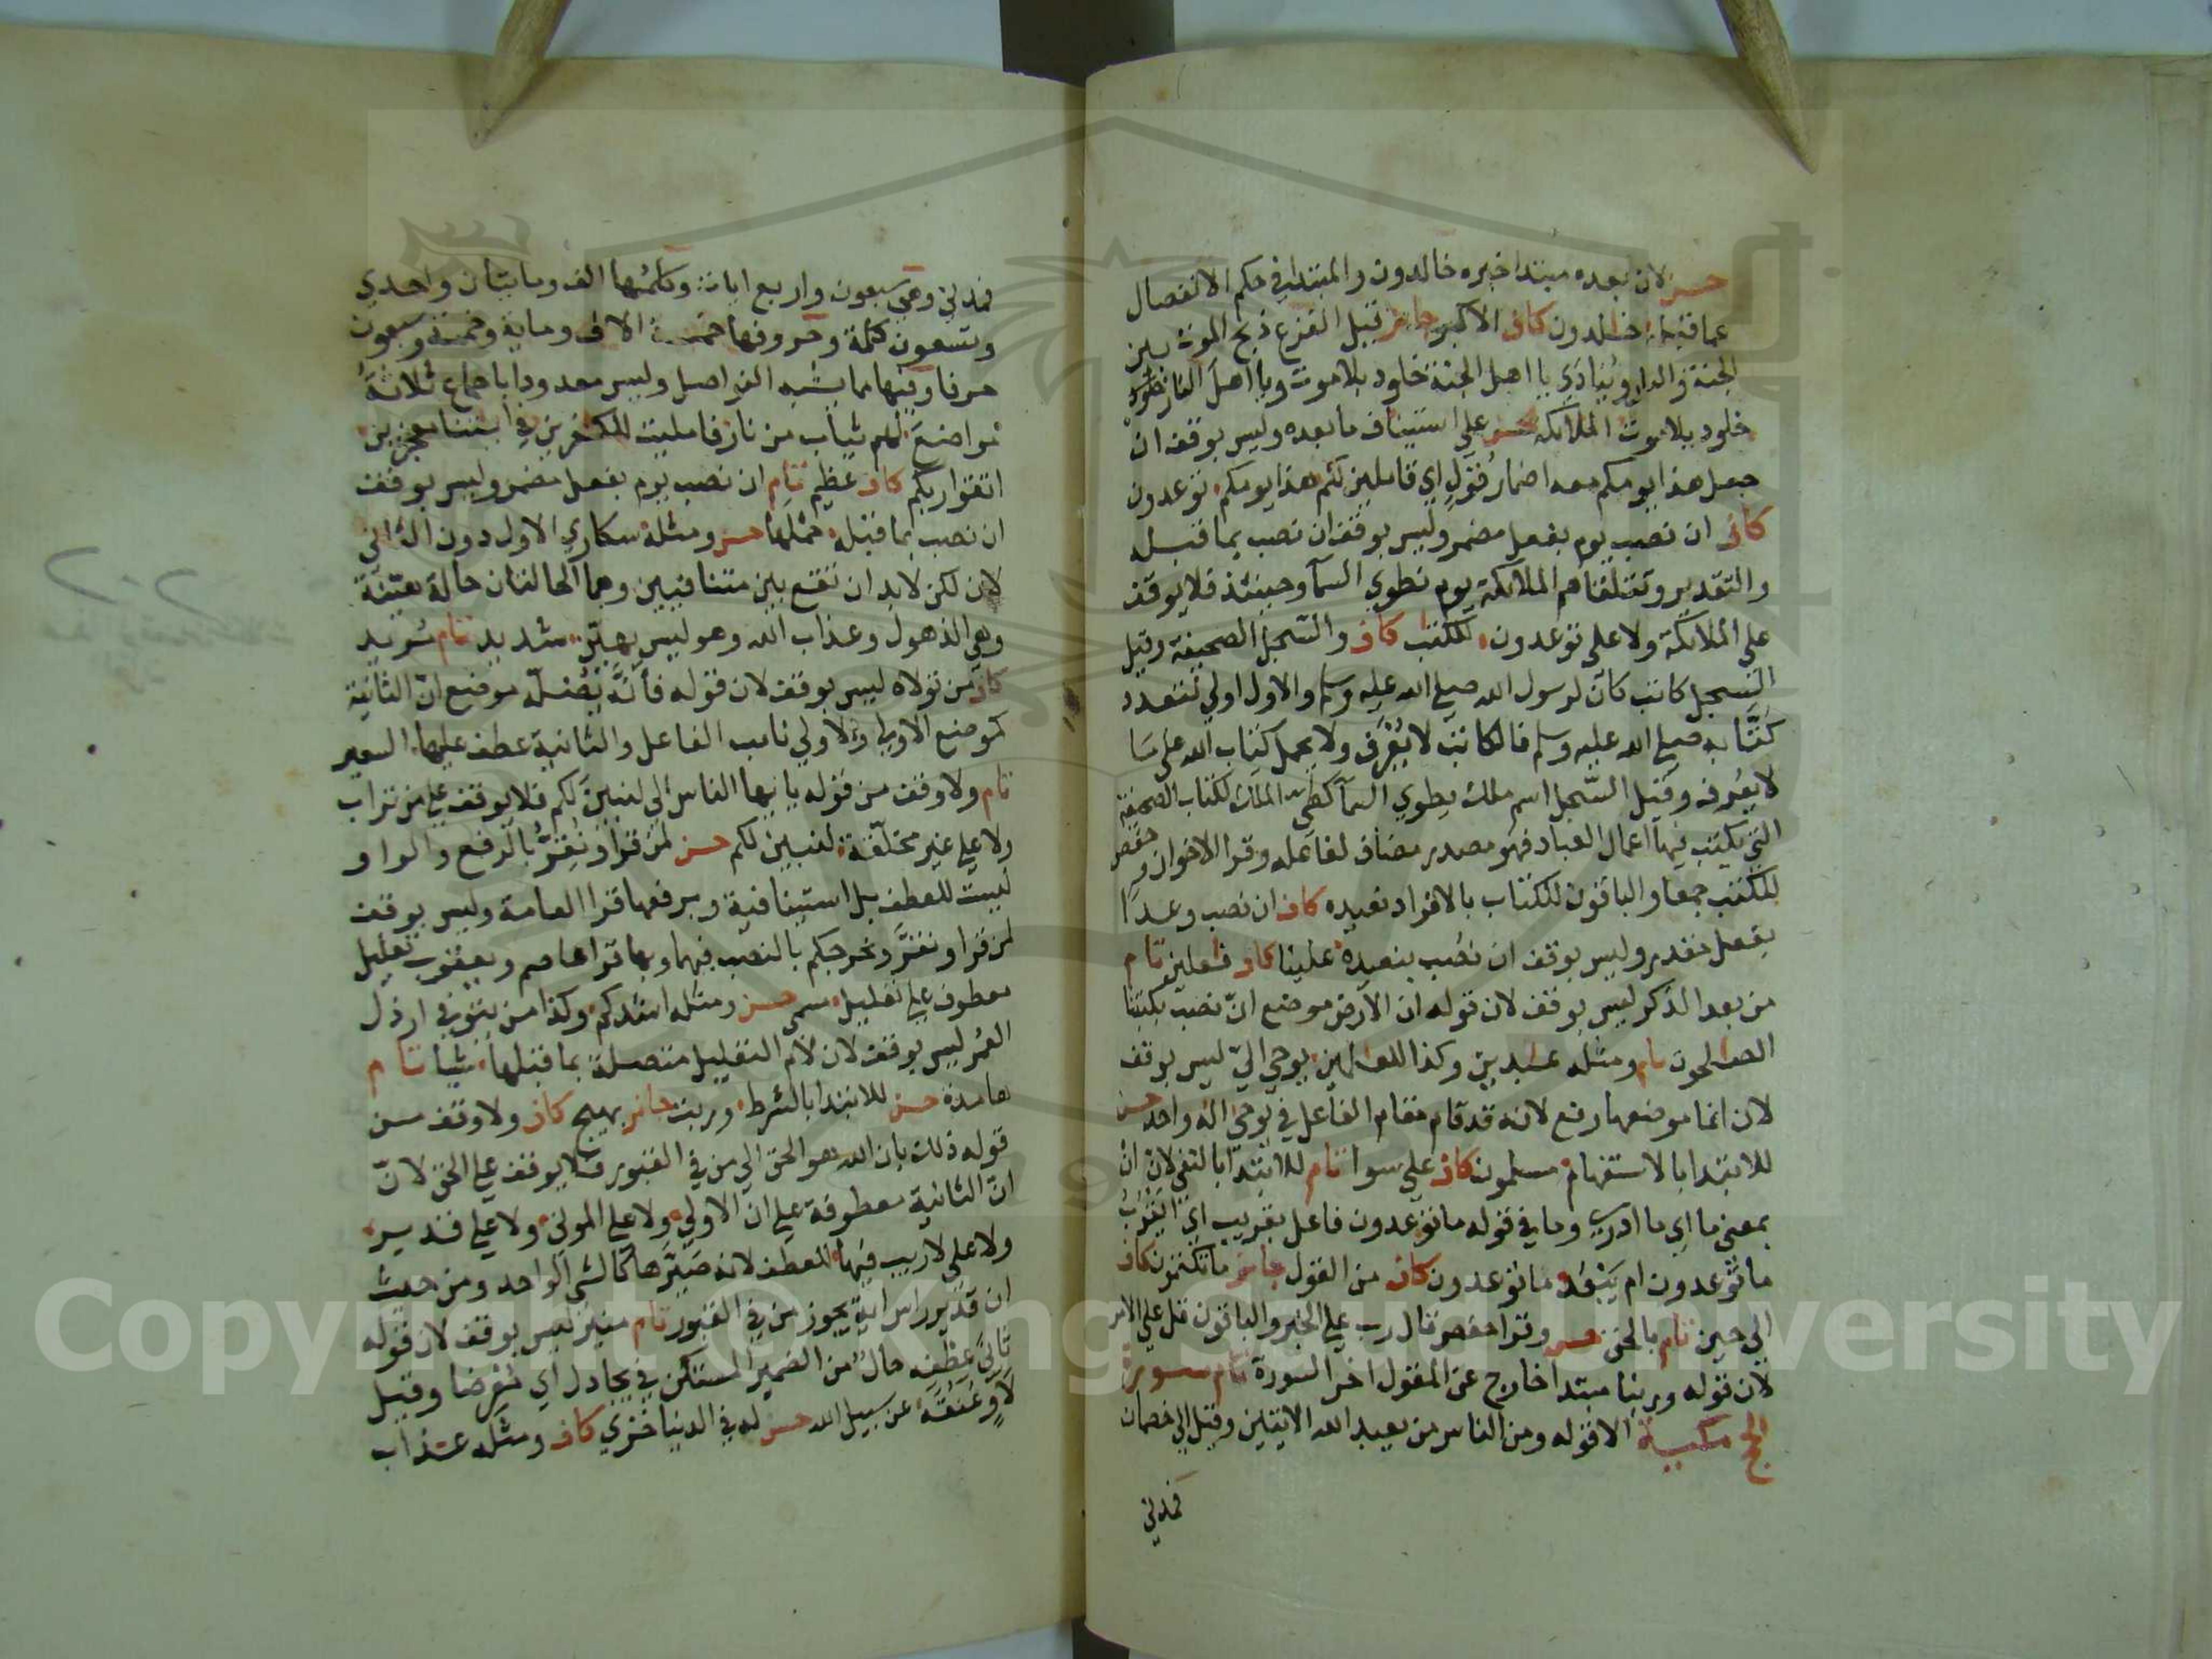 حسن لان بعده مبتدا خبره خالدون والمبتدا في حكم الانفصال
عما قبله خلدون كاف الاكبر جائز قيل الفزع ذبح الموت بين
الجنة والنار وينادي يا اهل الجنة خلود بلا موت ويا اهل النار خلود
خلود بلا موت الملائكة حسن على استيناف ما بعده وليس بوقف ان
جعل هذا يومكم معه اضمار قول اي قايلين لهم هذا يومكم توعدون
كاف ان نصب يوم بفعل مضمر وليس بوقف ان نصب بما قبله
والتقدير وتتلقاهم الملائكة يوم نطوي السما وحينئذ فلا يوقف
على الملائكة ولا على توعدون للكتب كاف والسجل الصحيفة وقيل
السجل كاتب كان لرسول الله صلى الله عليه وسلم والاول اولى لتعدد
كتّابه صلى الله عليه وسلم فالكاتب لا يُعْرَف ولا يحمل كتاب الله على ما
لا يعرفه وقيل السّجل اسم ملك يطوي السما كطي الملك لكتاب الصحيفة
التي يكتب فيها اعمال العباد فهو مصدر مضاف لفاعله وقرا الاخوان وحفص
للكتب جمعا والباقون للكتاب بالافراد نعيده كاف ان نصب وعدا
بفعل مقدر وليس بوقف ان نصب بنعيده علينا كاف فعلين تام
من بعد الذكر ليس بوقف لان قوله ان الارض موضع انّ نصب بكتبنا
الصالحون تام ومثله عبدين وكذا للعالمين يوحي اليّ ليس بوقف
لان انما موضعها رفع لانه قد قام مقام الفاعل في يوحى اله واحد حسن
للابتدا بالاستفهام مسلمون كاف على سوا تام للابتدا بالنفي لان ان
بمعنى ما اي ما ادري وما في قوله ما توعدون فاعل بقريب اي ايَقْرُبُ
ما توعدون ام يَبْعُد ما توعدون كاف من القول جائز ما تكتمون كاف
الى حين تام بالحق حسن وقرا حفص قال رب على الخبر والباقون قل على الامر
لان قوله وربنا مبتدا خارج عن المقول اخر السورة تام سورة
الحج مكية الا قوله ومن الناس من يعبد الله الايتين وقيل الى خصمان
فمدني
فمدني وهي سبعون واربع ايات وكلمُها الف ومايتان واحدي
وتسعون كلمة وحروفها خمسة الاف وماية وخمسة وسبعون
حرفا وفيها مما يشبه الفواصل وليس معدودا باجماع ثلاثة
مواضع لهم ثياب من نار فامليت للكفرين في ايتنا معجزين
اتقوا ربكم كاف عظيم تام ان نصب يوم بفعل مضمر وليس بوقف
ان نصب بما قبله حملها حسن ومثله سكاري الاول دون الثاني
لان لكن لا بد ان تقع بين متنافيين وهما الحالتان حالة هيّنة
وهي الذهول وعذاب الله وهو ليس بهيّن شديد تام مريد
كاف من تولاه ليس بوقف لان قوله فأنّه يُضله موضع انّ الثانية
كموضع الاولى والاولى نايب الفاعل والثانية عطف عليها السعير
تام ولا وقف من قوله يايها الناس الى لنبينَ لكم فلا يوقف على من تراب
ولا على غير مخلّقة لنبين لكم حسن لمن قرا ونُقِرُّ بالرفع والواو
ليست للعطف بل استينافية وبرفعها قرا العامة وليس بوقف
لمن قرا ونقرَّ ونخرجكم بالنصب فيهما وبها قرا عاصم ويعقوب تعليل
معطوف على تعليل مسمى حسن ومثله اشدكم وكذا من يتوفى ارذل
العمر ليس بوقف لان لام التعليل متصلة بما قبلها شيا تام
هامدة حسن للابتدا بالشرط وربت جائز بهيج كاف ولا وقف من
قوله ذلك بان الله هو الحق الى من في القبور فلا يوقف على الحق لانّ
انّ الثانية معطوفة على ان الاولى ولا على الموتى ولا على قدير
ولا على لا ريب فيها للعطف لانه صَيّرها كالشي الواحد ومن حيث
ان قدير راس اية يجوز من في القبور تام منير ليس بوقف لان قوله
ثانيَ عِطْفِه حالٌ من الضمير المستكن في يجادل اي مُعرضا وقيل
لاوٍ عُنُقَه عن سبيل الله حسن له في الدنيا خزي كاف ومثله عذاب
Copyright © King Saud University